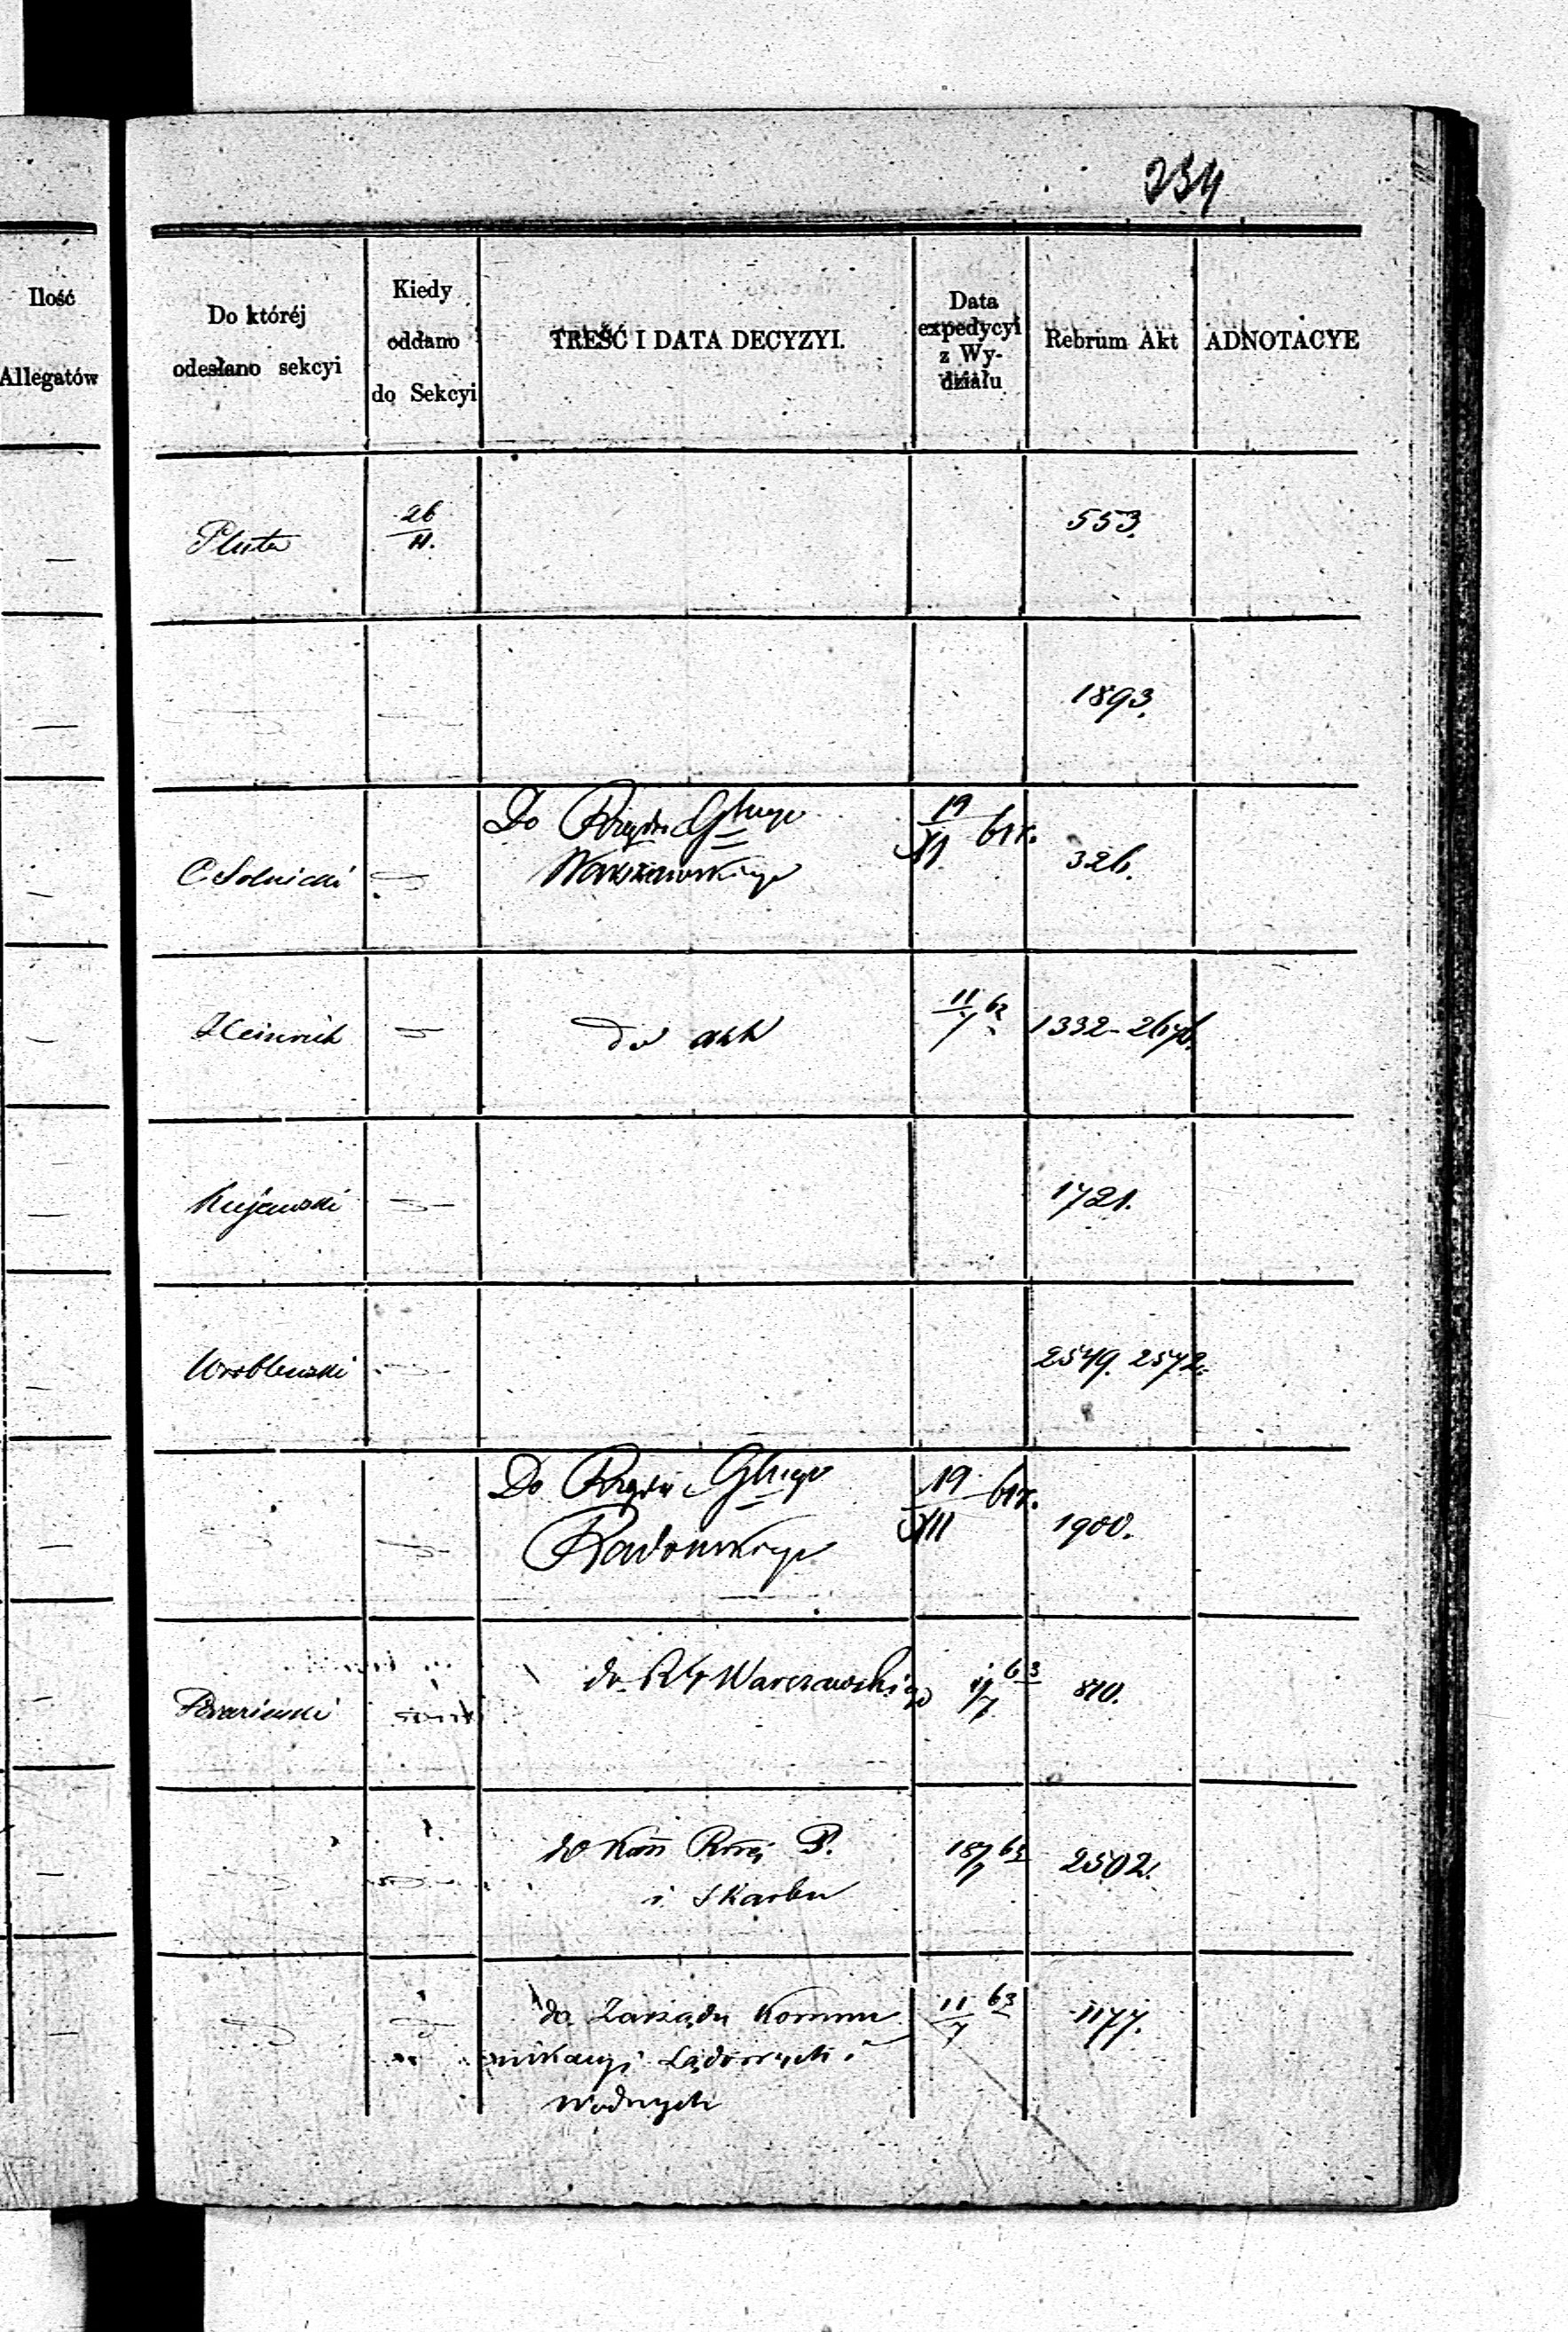 234
Ilość
Allegatów
Do któréj
odesłano sekcyi
Kiedy
oddano
do Sekcyi
TREŚĆ I DATA DECYZYI.
Data
expedycyi
z Wy-
działu
Rebrum Akt
ADNOTACYE
Pluta
26
11.
553.
1893.
Do Rządu Głnego
Warszawskiego
19
XI 61r.
Osolnicki
326.
Heinrich
do akt
11 62
1332-2676.
Kujawski
1721.
Wroblewski
2549. 2572.
Do Rządu Głnego
Radomskiego
19
XII 61r.
1900.
do RG Warszawskiego
63
810.
do Kom Rząj P.
i Skarbu
2502.
do Zarządu Kommu
nikacyi Lądowych i
Wodnych
11 63
1177.